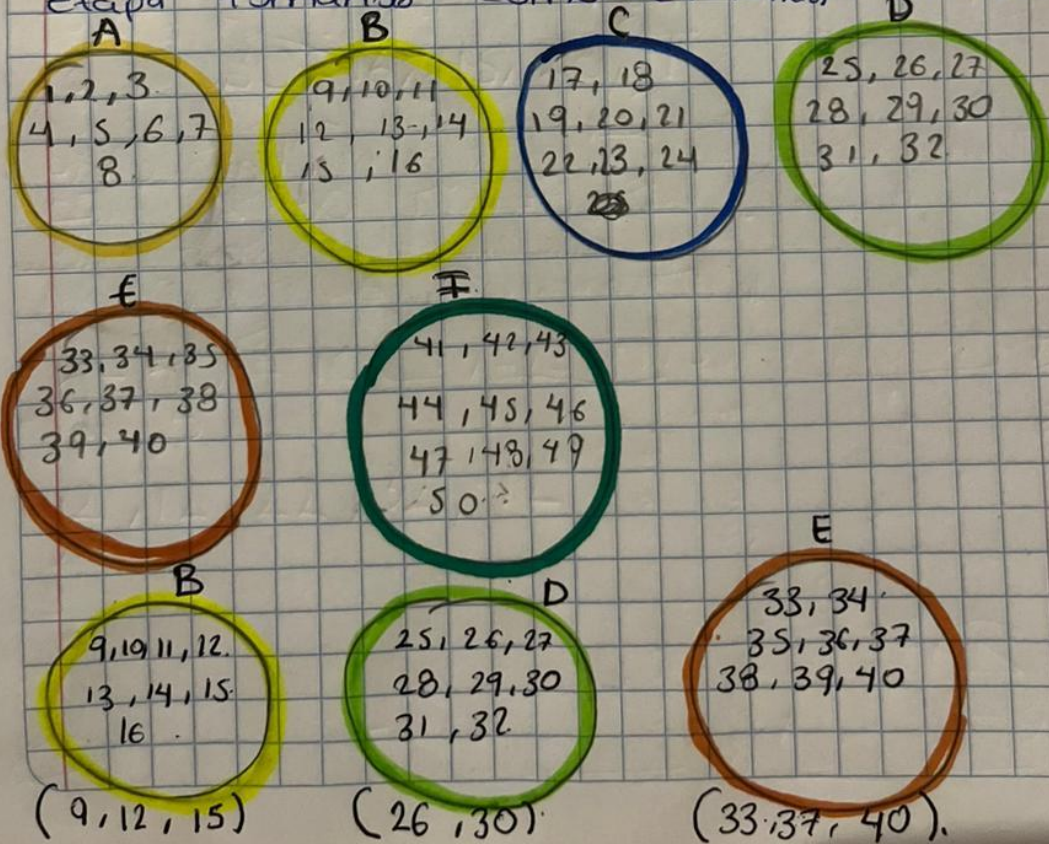 A B C D
1, 2, 3
4, 5, 6, 7
8
9, 10, 11
12, 13, 14
15, 16
17, 18
19, 20, 21
22, 23, 24
25, 26, 27
28, 29, 30
31, 32
E F
33, 34, 35
36, 37, 38
39, 40
41, 42, 43
44, 45, 46
47, 48, 49
50
B D E
9, 10, 11, 12.
13, 14, 15.
16
25, 26, 27
28, 29, 30
31, 32
33, 34
35, 36, 37
38, 39, 40
(9, 12, 15) (26, 30). (33, 37, 40).